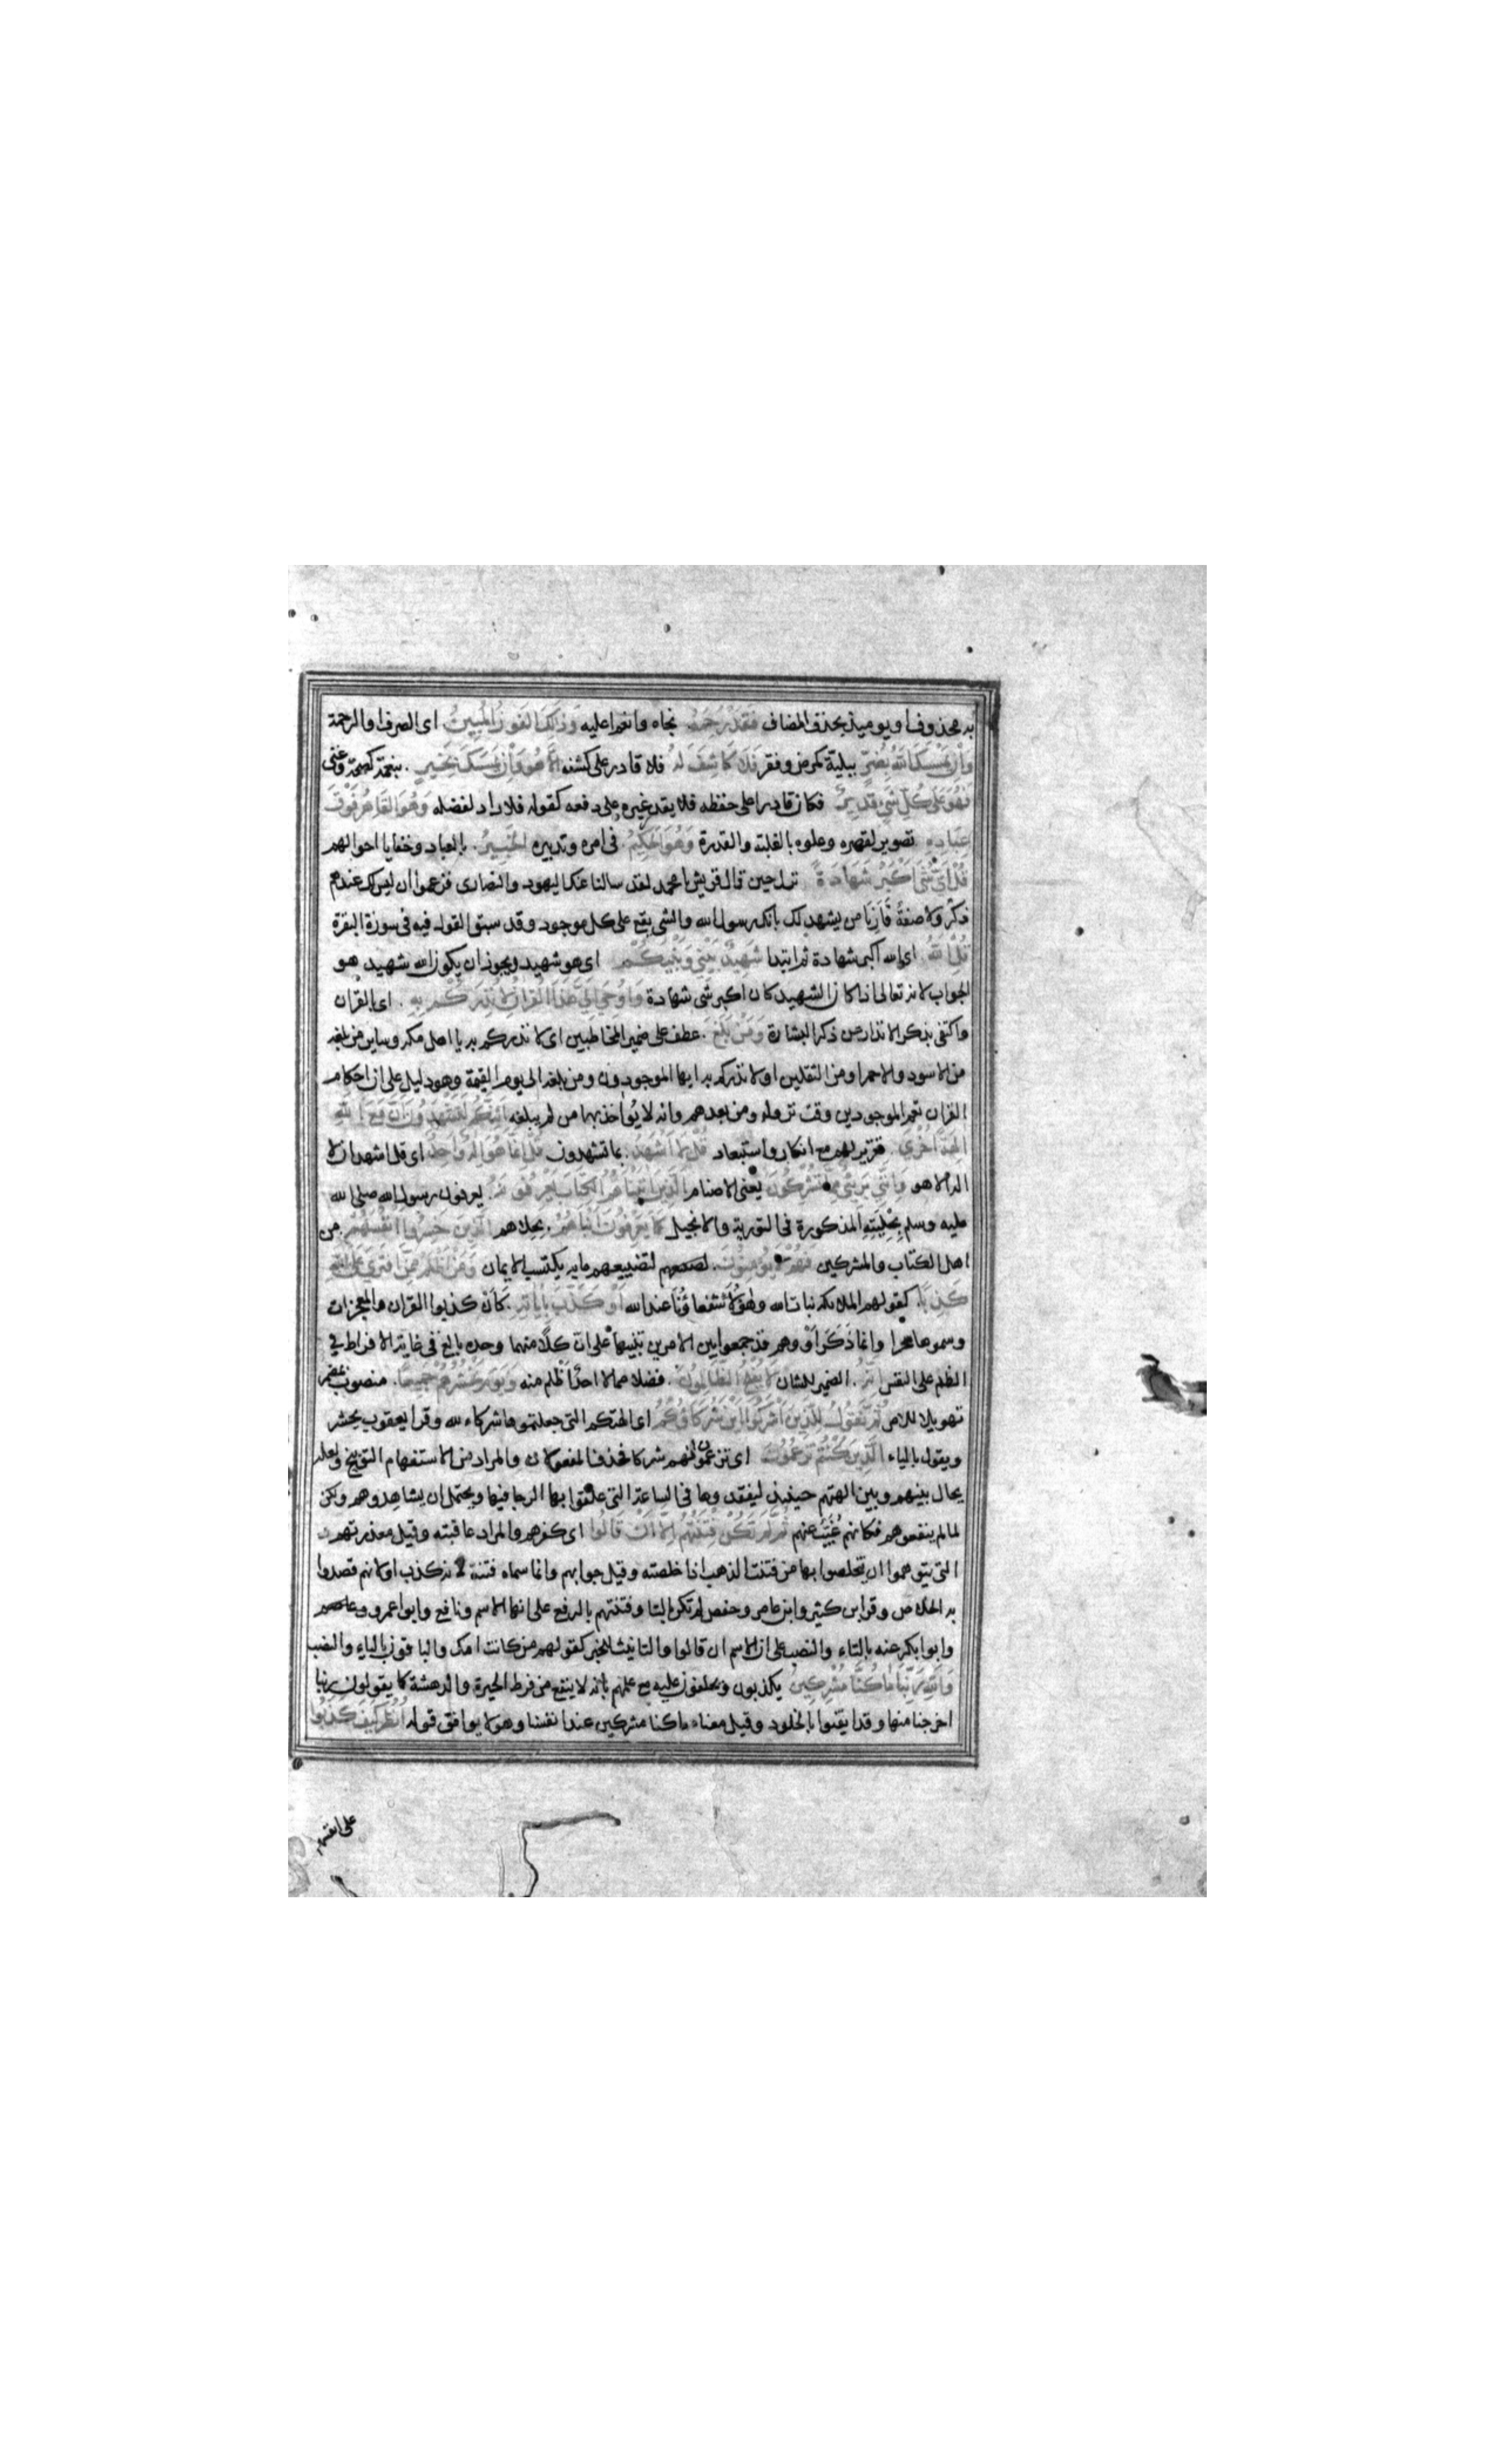 به محذوف او يوميذ بحذف المضاف فَقَدْ رَحِمَهُ نجاه وانعم عليه وَذلِكَ الفَوزُ المُبِينُ اى الصرف او الرحمة
وَاِنْ يَمْسَسْكَ اللهُ بِضُرٍّ ببلية كمرض وفقر فَلاَ كَاشِفَ لَهُ فلا قادر على كشفه اِلَّا هُوَ وَاِنْ يَمْسَسْكَ بِخَيرٍ . بنعمة كصحة وغنى
فَهُوَ عَلَى كُلِّ شَيءٍ قَدِيرٌ فكان قادرا على حفظه فلا يقدر غيره على دفعه كقوله فلا راد لفضله وَهُوَ القَاهِرُ فَوْقَ
عِبَادِهِ تصوير لقهره وعلوه بالغلبة والقدرة وَهُوَ الحَكِيمُ فى امره وتدبيره الخَبِيرُ . بالعباد وخفايا احوالهم
قُلْ اَيُّ شَيْءٍ اَكْبَرُ شَهَادَةً نزلت حين قال قريش يا محمد لقد سالنا عنك اليهود والنصارى فزعموا ان ليس لك عندهم
ذكرٌ ولا صفةٌ فَاَرِنَا من يشهد لك بانك رسول الله والشى يقع على كل موجود وقد سبق القول فيه فى سورة البقرة
قُلِ اللهُ اى الله اكبر شهادة ثم ابتدا شَهِيدٌ بَيْنِي وَبَيْنَكُمْ اى هو شهيد ويجوز ان يكون الله شهيد هو
الجواب لانه تعالى اذا كان الشهيد كان اكبر شى شهادة وَاُوحِيَ اِلَيَّ هَذَا القُرانُ لِاُنْذِرَكُمْ بِهِ . اى بالقران
واكتفى بذكر الانذار عن ذكر البشارة وَمَنْ بَلَغَ . عطف على ضمير المخاطبين اى لانذركم به يا اهل مكه وساير من بلغه
من الاسود والاحمر او من الثقلين او لانذركم به ايها الموجودون ومن بلغه الى يوم القيمة وهو دليل على ان احكام
القران تعم الموجودين وقت نزوله ومن بعدهم وانه لا يُؤاخذ بها من لم يبلغه اَئِنَّكُمْ لَتَشْهَدُونَ اَنَّ مَعَ اللهِ
الِهَةً اُخْرَى . تقرير لهم مع انكار واستبعاد قُلْ لَا اَشْهَدُ . بما تشهدون قُلْ اِنَّمَا هُوَ اِلهٌ وَاحِدٌ اى قل اشهد ان لا
اله الا هو وَاِنَّنِي بَرِيْءٌ مِمَّا تُشْرِكُونَ يعنى الاصنام الَّذِينَ اتَيْنَاهُمُ الكِتَابَ يَعْرِفُونَهُ . يعرفون رسول الله صلى الله
عليه وسلم بِحُِليَتِهِ المذكورة فى التورية والانجيل كَمَا يَعْرِفُونَ اَبْنَاءَهُمْ . بحلاهم الَّذِينَ خَسِرُوا اَنْفُسَهُمْ . من
اهل الكتاب والمشركين فَهُمْ لَا يُؤْمِنُونَ . لتضييعهم ما به يكتسب الايمان وَمَنْ اَظْلَمُ مِمَّنِ افْتَرَى عَلَى اللهِ
كَذِبًا . كقولهم الملائكة بنات الله وهٰؤلاء شفعاؤُنا عند الله اَوْ كَذَّبَ بِايَاتِهِ . كَاَنْ كذبوا القران والمعجزات
وسموها سحرا وانما ذَكَرَ اَوْ وهم قد جمعوا بين الامرين تنبيها على ان كلاً منهما وحده بالغ فى غاية الافراط في
الظلم على النفس اِنَّهُ . الضمير للشان لَا يُفْلِحُ الظَّالِمُونَ . فضلا عما لا احدَ اَظْلم منه وَيَوْمَ نَحْشُرُهُمْ جَمِيعًا . منصوب بمضمر
تهويلا للامر ثُمَّ نَقُولُ لِلَّذِينَ اَشْرَكُوا اَيْنَ شُرَكَاؤُكُمُ اى الهتكم التى جعلتموها شركاء لله وقرا يعقوب يحشر
ويقول بالياء الَّذِينَ كُنْتُمْ تَزْعُمُونَ اى تزعمونهم شركا فحذف المفعولان والمراد من الاستفهام التوبيخ ولعله
يحال بينهم وبين الهتهم حينيذ ليفقدوها فى الساعة التى علقوا بها الرجا فيها ويحتمل ان يشاهدوهم ولكن
لما لم ينفعوهم فكانهم غُيَّبٌ عنهم ثُمَّ لَمْ تَكُنْ فِتْنَتُهُمْ اِلَّا اَنْ قَالُوا اى كفرهم والمراد عاقبته وقيل معذرتهم
التى يتوهموا ان يتخلصوا بها من فتنت الذهب اذا خلصته وقيل جوابهم وانما سماه فتنة لانه كذب او لانهم قصدوا
به الخلاص وقرا ابن كثير وابن عامر وحفص لم تكن بالتا وفتنتهم بالرفع على انها الاسم ونافع وابوا عمرو وعاصم
وابوا بكر عنه بالتاء والنصب على ان الاسم ان قالوا والتانيث للخبر كقولهم من كانت امك والباقون بالياء والنصب
وَاللهِ رَبِّنَا مَا كُنَّا مُشْرِكِينَ يكذبون ويحلفون عليه مع علمهم بانه لا ينفع من فرط الحيرة والدهشة كما يقولون ربنا
اخرجنا منها وقد ايقنوا بالخلود وقيل معناه ما كنا مشركين عند انفسنا وهو لا يوافق قوله اُنْظُرْ كَيْفَ كَذَبُوا
على انفسهم